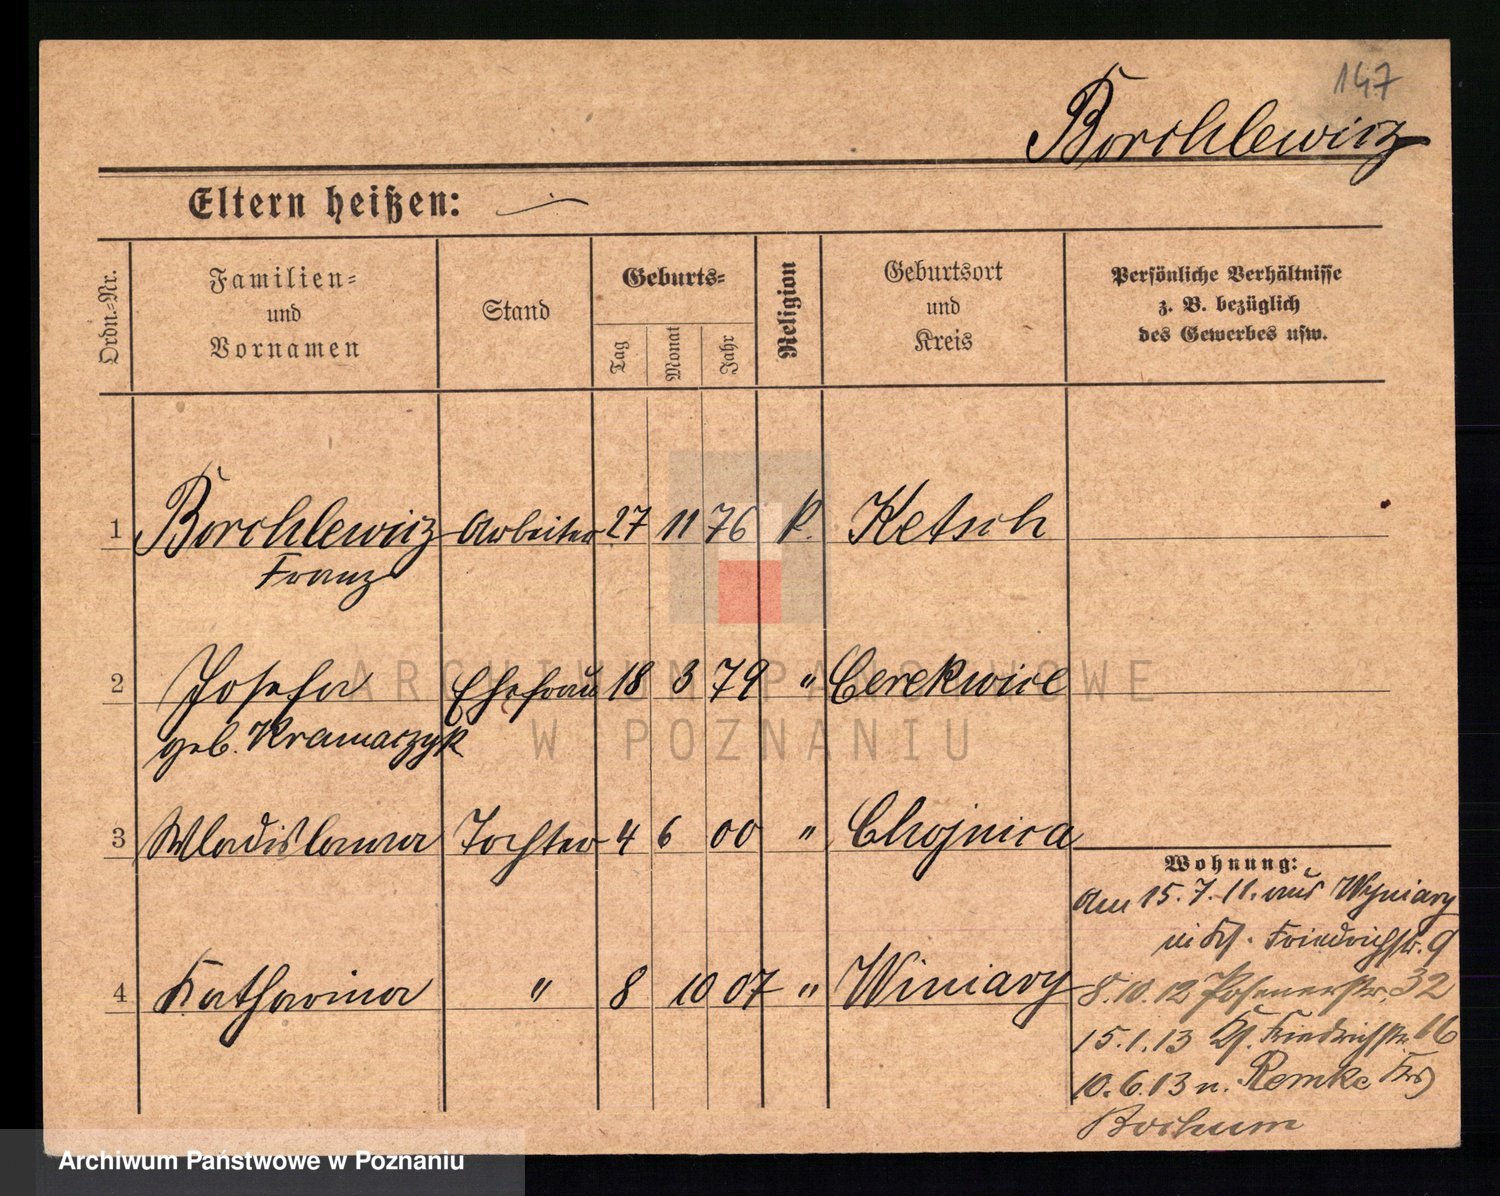 147
Borchlewicz
Eltern heißen:
Ordn.-Nr.
Familien- und Vornamen
Stand
Geburts-
Tag
Monat
Jahr
Religion
Geburtsort und Kreis
Persönliche Verhältnisse
z. B. bezüglich
des Gewerbes usw.
1 Borchlewicz Arbeiter 27 11 76 k. Ketsch
Franz
2 Josefa Ehefrau 18 3 79 " Cerekwice
geb. Kramarzyk
3 Wladislawa Tochter 4 6 00 " Chojnica
4 Katharina " 8 10 07 " Winiary
Wohnung:
Am 15.7.11. aus Wyniary
Friedrichstr. 9
8.10.12 Posenerstr. 32
15.1.13 Friedrichstr. 16
10.6.13 n. Remke Krs
Bochum
ARCHIWUM PAŃSTWOWE
W POZNANIU
Archiwum Państwowe w Poznaniu